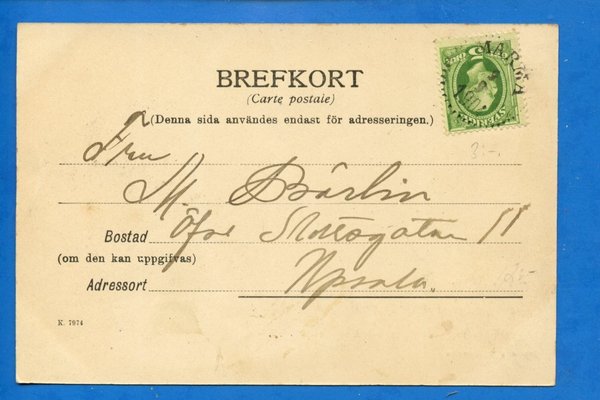 BREFKORT
(Carte postale)
(Denna sida användes endast för adresseringen.)
Fru
M. Bärlin
Bostad Öfre Slottsgatan 11
(om den kan uppgifvas)
Adressort Upsala.
K. 7974
MARMA
3:-